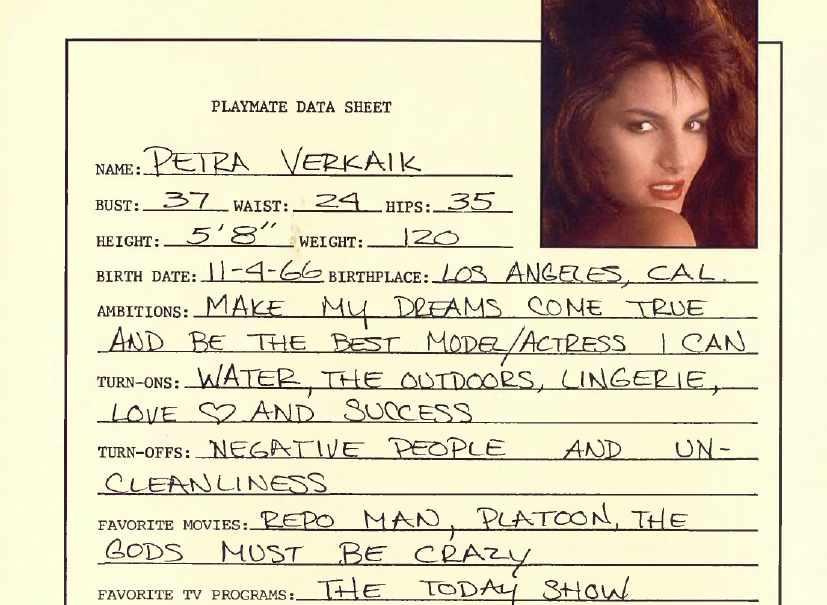 PLAYMATE DATA SHEET
NAME: PETRA VERKAIK
BUST: 37 WAIST: 24 HIPS: 35
HEIGHT: 5'8" WEIGHT: 120
BIRTH DATE: 11-4-66 BIRTHPLACE: LOS ANGELES, CAL.
AMBITIONS: MAKE MY DREAMS COME TRUE
AND BE THE BEST MODEL/ACTRESS I CAN
TURN-ONS: WATER, THE OUTDOORS, LINGERIE,
LOVE ♡ AND SUCCESS
TURN-OFFS: NEGATIVE PEOPLE AND UN-
CLEANLINESS
FAVORITE MOVIES: REPO MAN, PLATOON, THE
GODS MUST BE CRAZY
FAVORITE TV PROGRAMS: THE TODAY SHOW